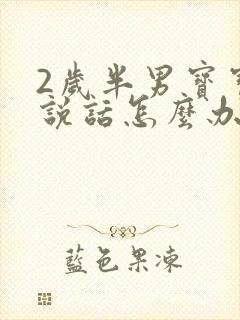 2歲半男寶
說話怎麼办
藍色果凍